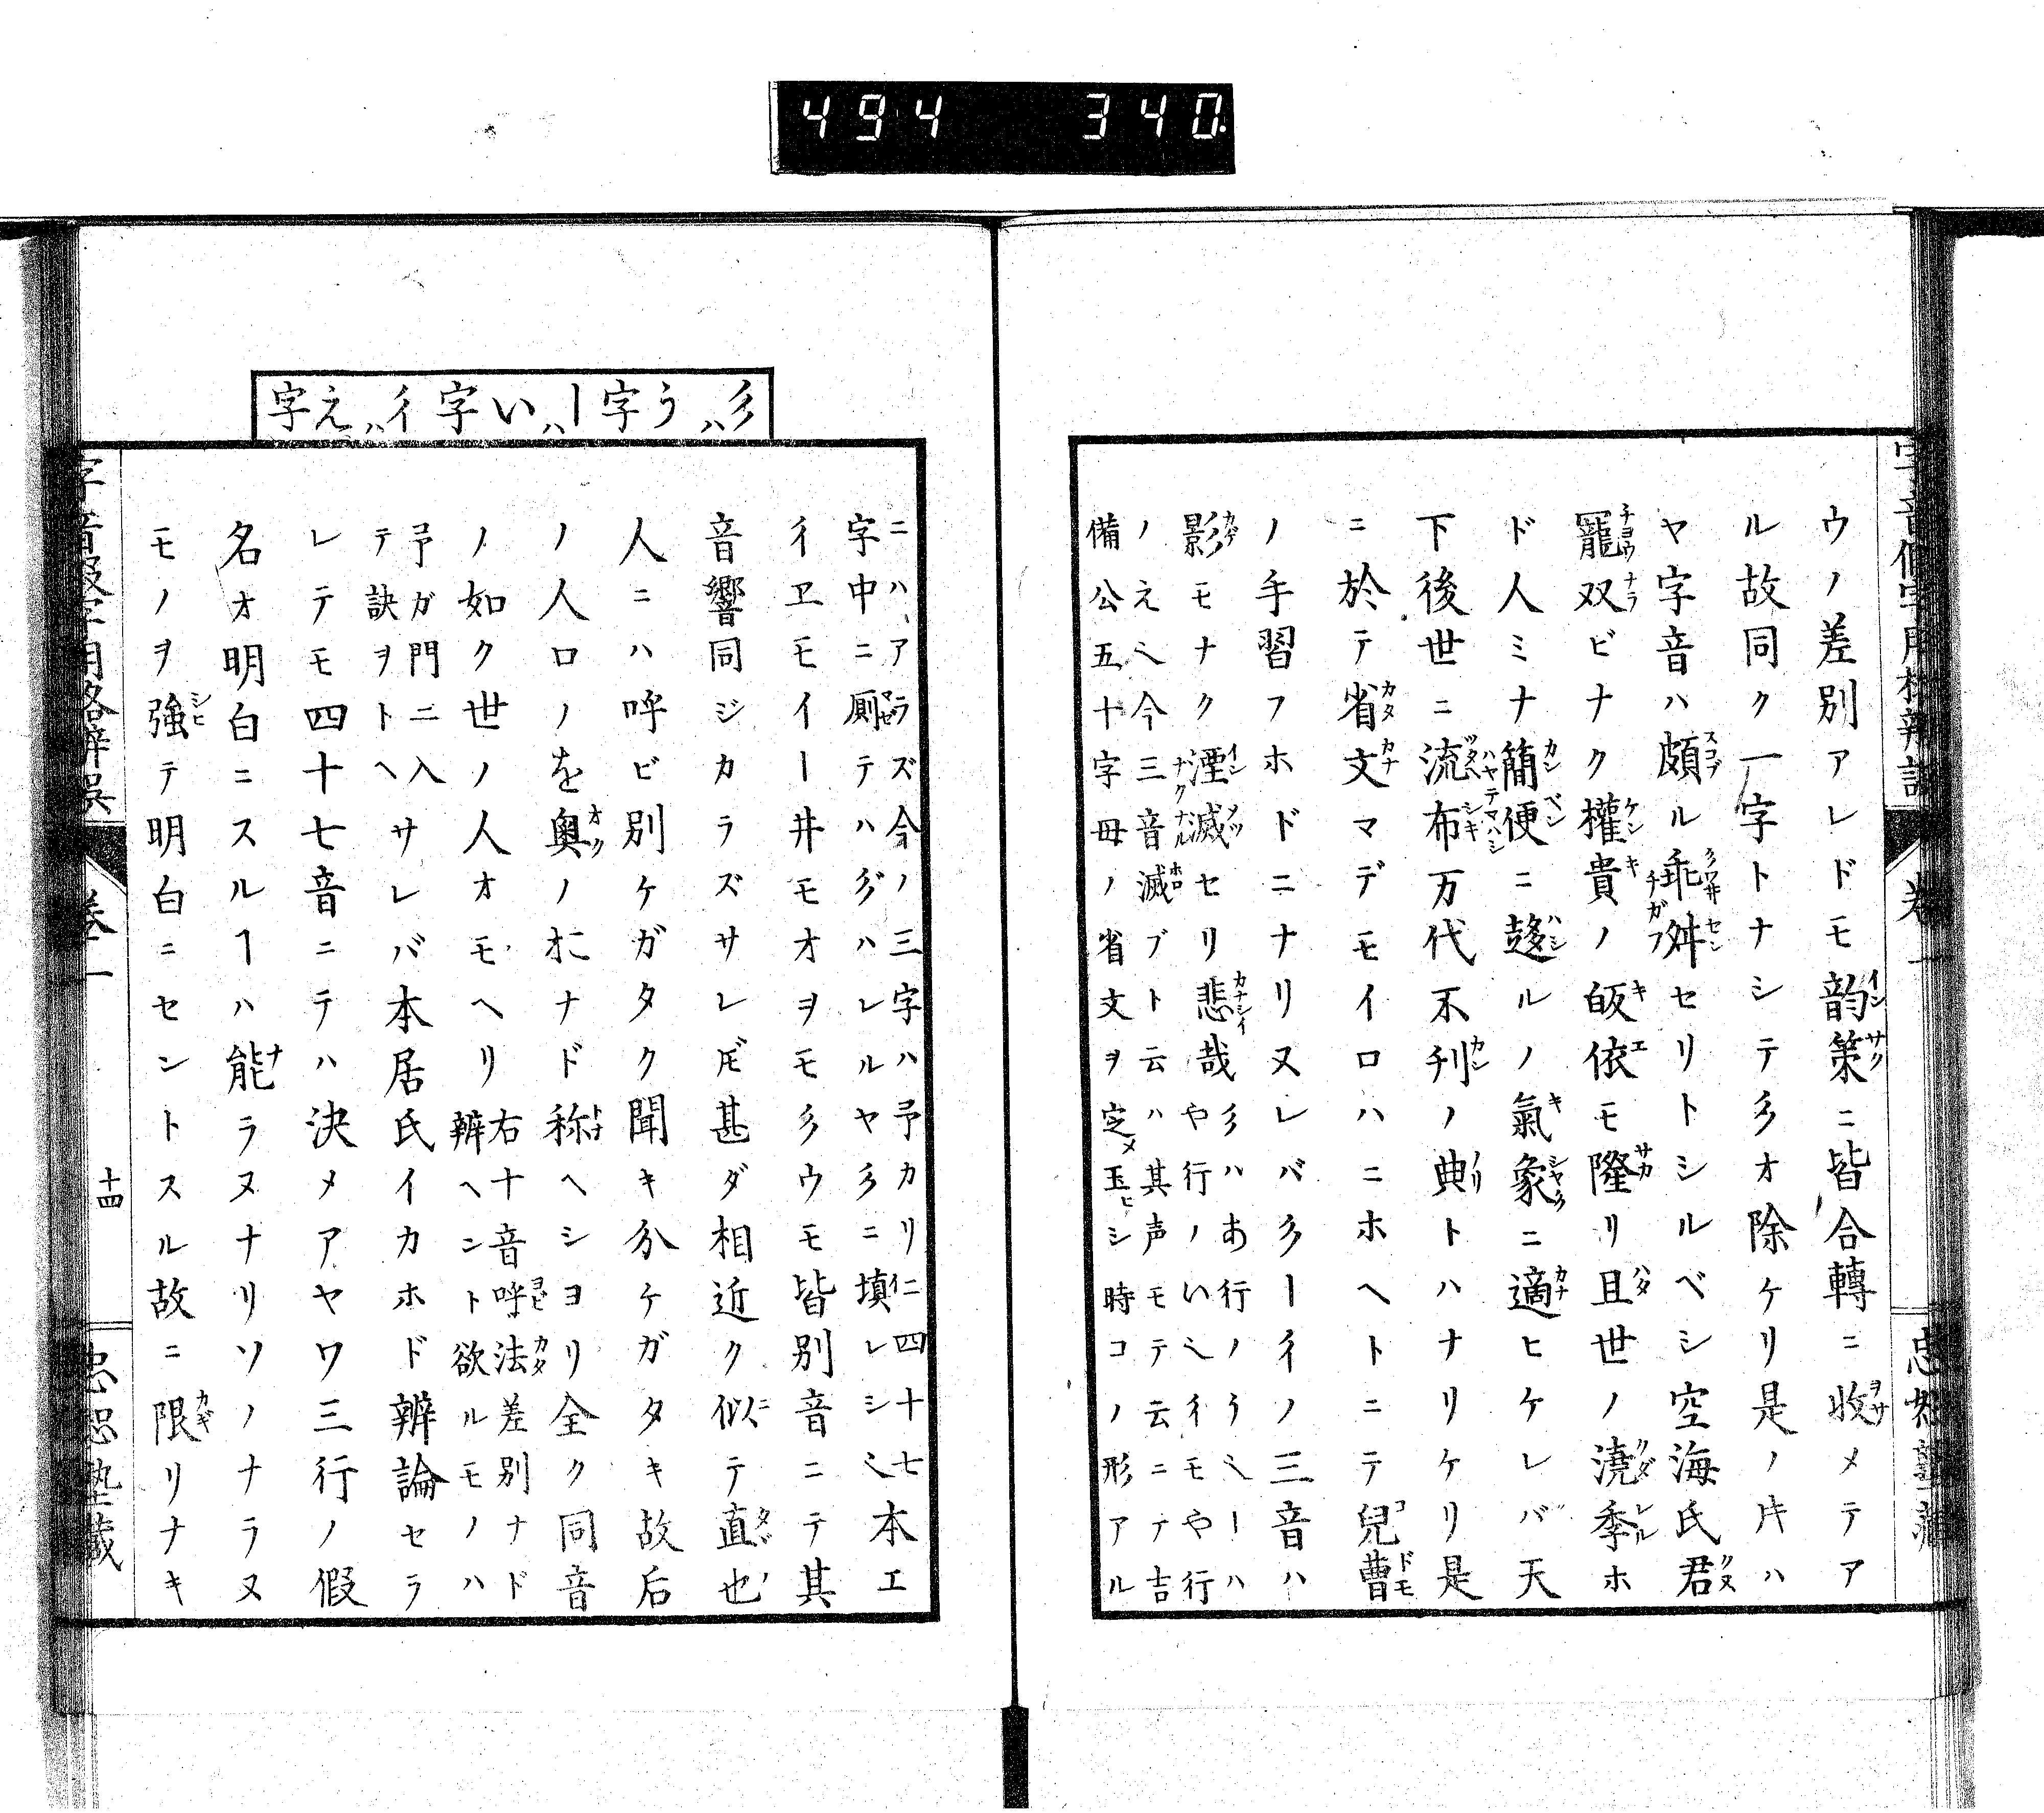 494 340
ウノ差別アレドモ韵策ニ皆合轉ニ收メテア
ル故同ク一字トナシテ彡オ除ケリ是ノ片ハ
ヤ字音ハ頗ル乖舛セリトシルベシ空海氏君
寵双ビナク權貴ノ皈依モ隆リ且世ノ澆季ホ
ド人ミナ簡便ニ趍ルノ氣象ニ適ヒケレバ天
下後世ニ流布万代不刊ノ典トハナリケリ是
ニ於テ省文マデモイロハニホヘトニテ兒曹
ノ手習フホドニナリヌレバ彡ーイノ三音ハ
影モナク湮滅セリ悲哉彡ハあ行ノうミーハ
や行ノいミイモや行
ノえミ今三音滅ブト云ハ其声モテ云ニテ吉
備公五十字母ノ省文ヲ定メ玉ヒシ時コノ形アル
彡ハう字ーハい字イハえ字
ニハアラズ今ノ三字ハ予カリニ四十七
字中ニ厠テハグハレルヤ彡ニ填レシミ本エ
イヱモイー井モオヲモ彡ウモ皆別音ニテ其
音響同ジカラズサレ𪜈甚ダ相近ク似テ直也
人ニハ呼ビ別ケガタク聞キ分ケガタキ故后
ノ人口ノを奥ノオニナド称ヘシヨリ全ク同音
ノ如ク世ノ人オモヘリ右十音呼法差別ナド
辨ヘント欲ルモノハ
予ガ門ニ入
テ訣ヲトヘサレバ本居氏イカホド辨論セラ
レテモ四十七音ニテハ決メアヤワ三行ノ假
名オ明白ニスルヿハ能ラヌナリソノナラヌ
モノヲ強テ明白ニセントスル故ニ限リナキ
卷一
十四
忠恕塾藏